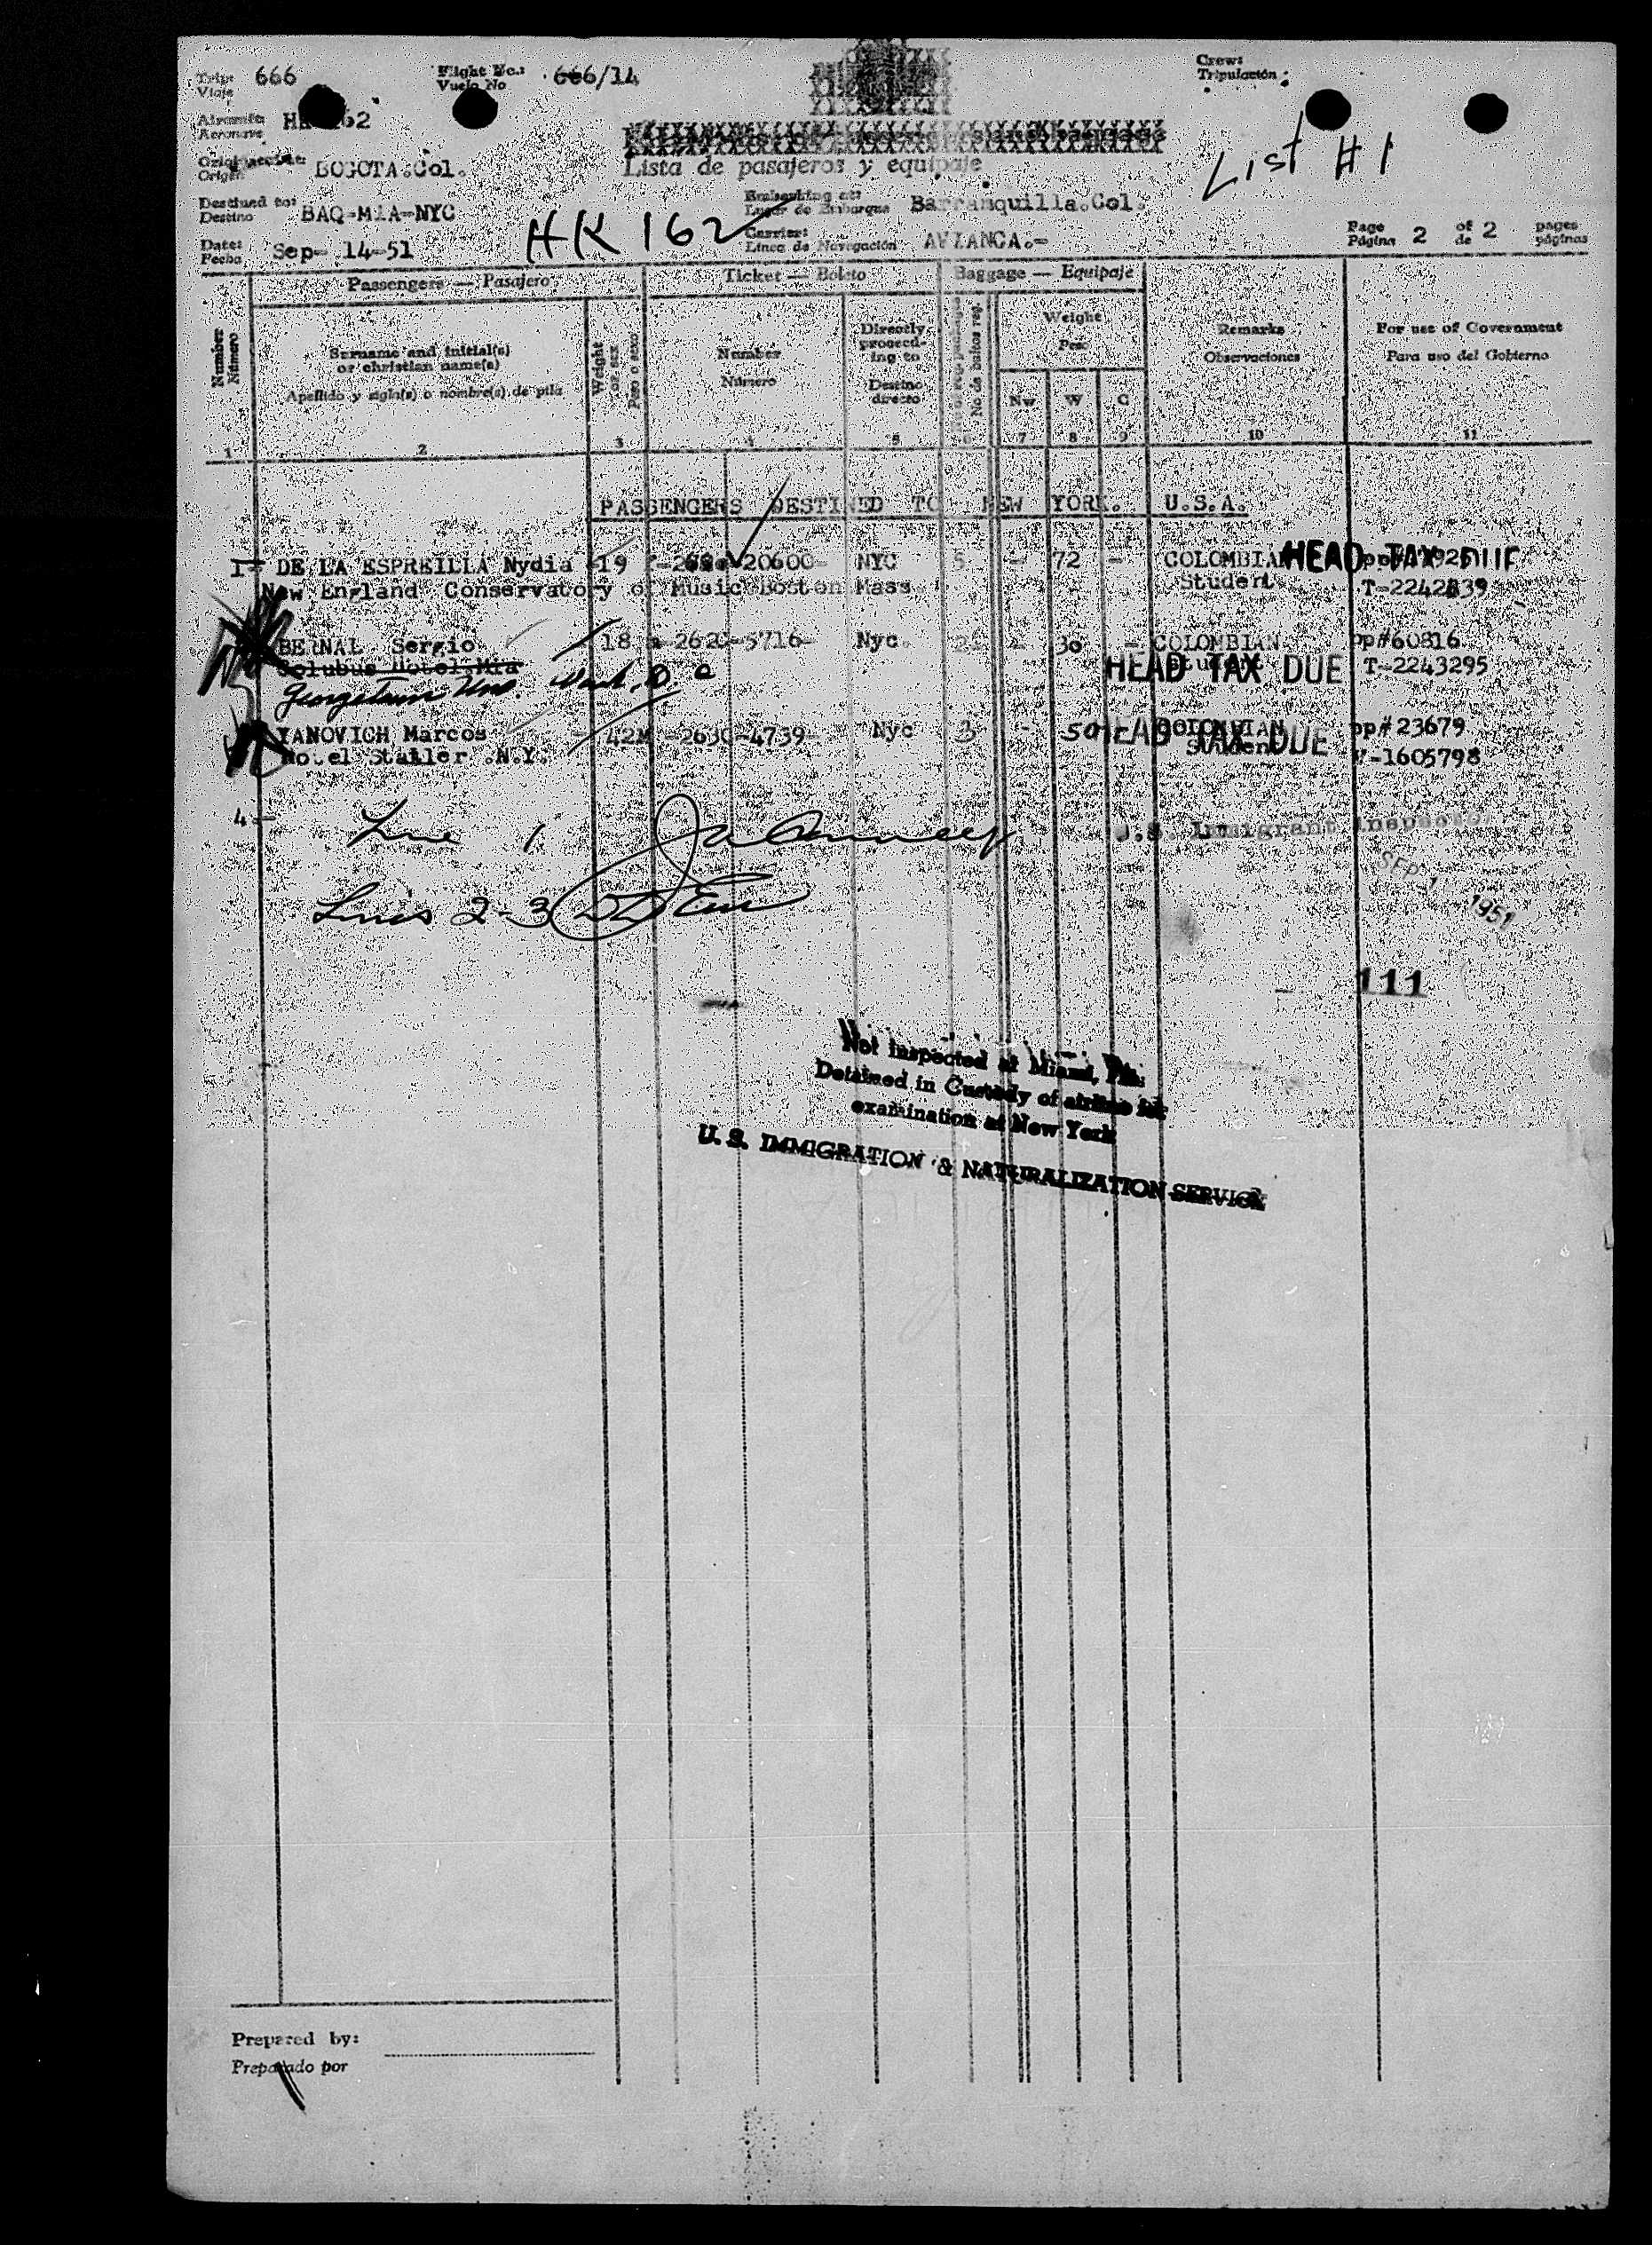 Trip: 666 Flight No.: 666/14 Crew:
Viaje Vuelo No Tripulación:
Aircraft: HK 162
Aeronave
List #1
Lista de pasajeros y equipaje
Origen BOGOTA.Col.
Destined to: Embarking at:
Destino BAQ-MIA-NYC Lugar de Embarque Barranquilla.Col.
HK 162
Date: Sep- 14-51 Carrier: AVIANCA.- Page 2 of 2 pages
Fecha Línea de Navegación Página de páginas
Passengers — Pasajero Ticket — Boleto Baggage — Equipaje
Number Número
Surname and initial(s) or christian name(s)
Apellido y sigla(s) o nombre(s) de pila
Weight or sex
Peso o sexo
Number
Número
Directly proceeding to
Destino directo
No de bultos reg.
Weight
Peso
Nw W C
Remarks
Observaciones
For use of Government
Para uso del Gobierno
1 2 3 4 5 6 7 8 9 10 11
PASSENGERS DESTINED TO NEW YORK. U.S.A.
1- DE LA ESPREILLA Nydia 19 20600- NYC 5 - 72 - COLOMBIAN HEAD TAX DUE
New England Conservatory of Music Boston Mass Student T-2242839
BERNAL Sergio 18 -2620-5716- Nyc. 2 - 30 - COLOMBIAN pp#60816
Colubus Hotel Mia Student HEAD TAX DUE T-2243295
Georgetown Univ. Wash. D C
YANOVICH Marcos 42M -2630-4739- Nyc 3 - 50 HEAD TAX DUE pp#23679
Hotel Statler .N.Y. Student -1605798
4-
Line 1
U.S. Immigrant Inspector
SEP 1 1951
Lines 2-3
111
Not inspected at Miami, Fla.
Detained in Custody of airline for
examination at New York
U. S. IMMIGRATION & NATURALIZATION SERVICE
Prepared by:
Preparado por